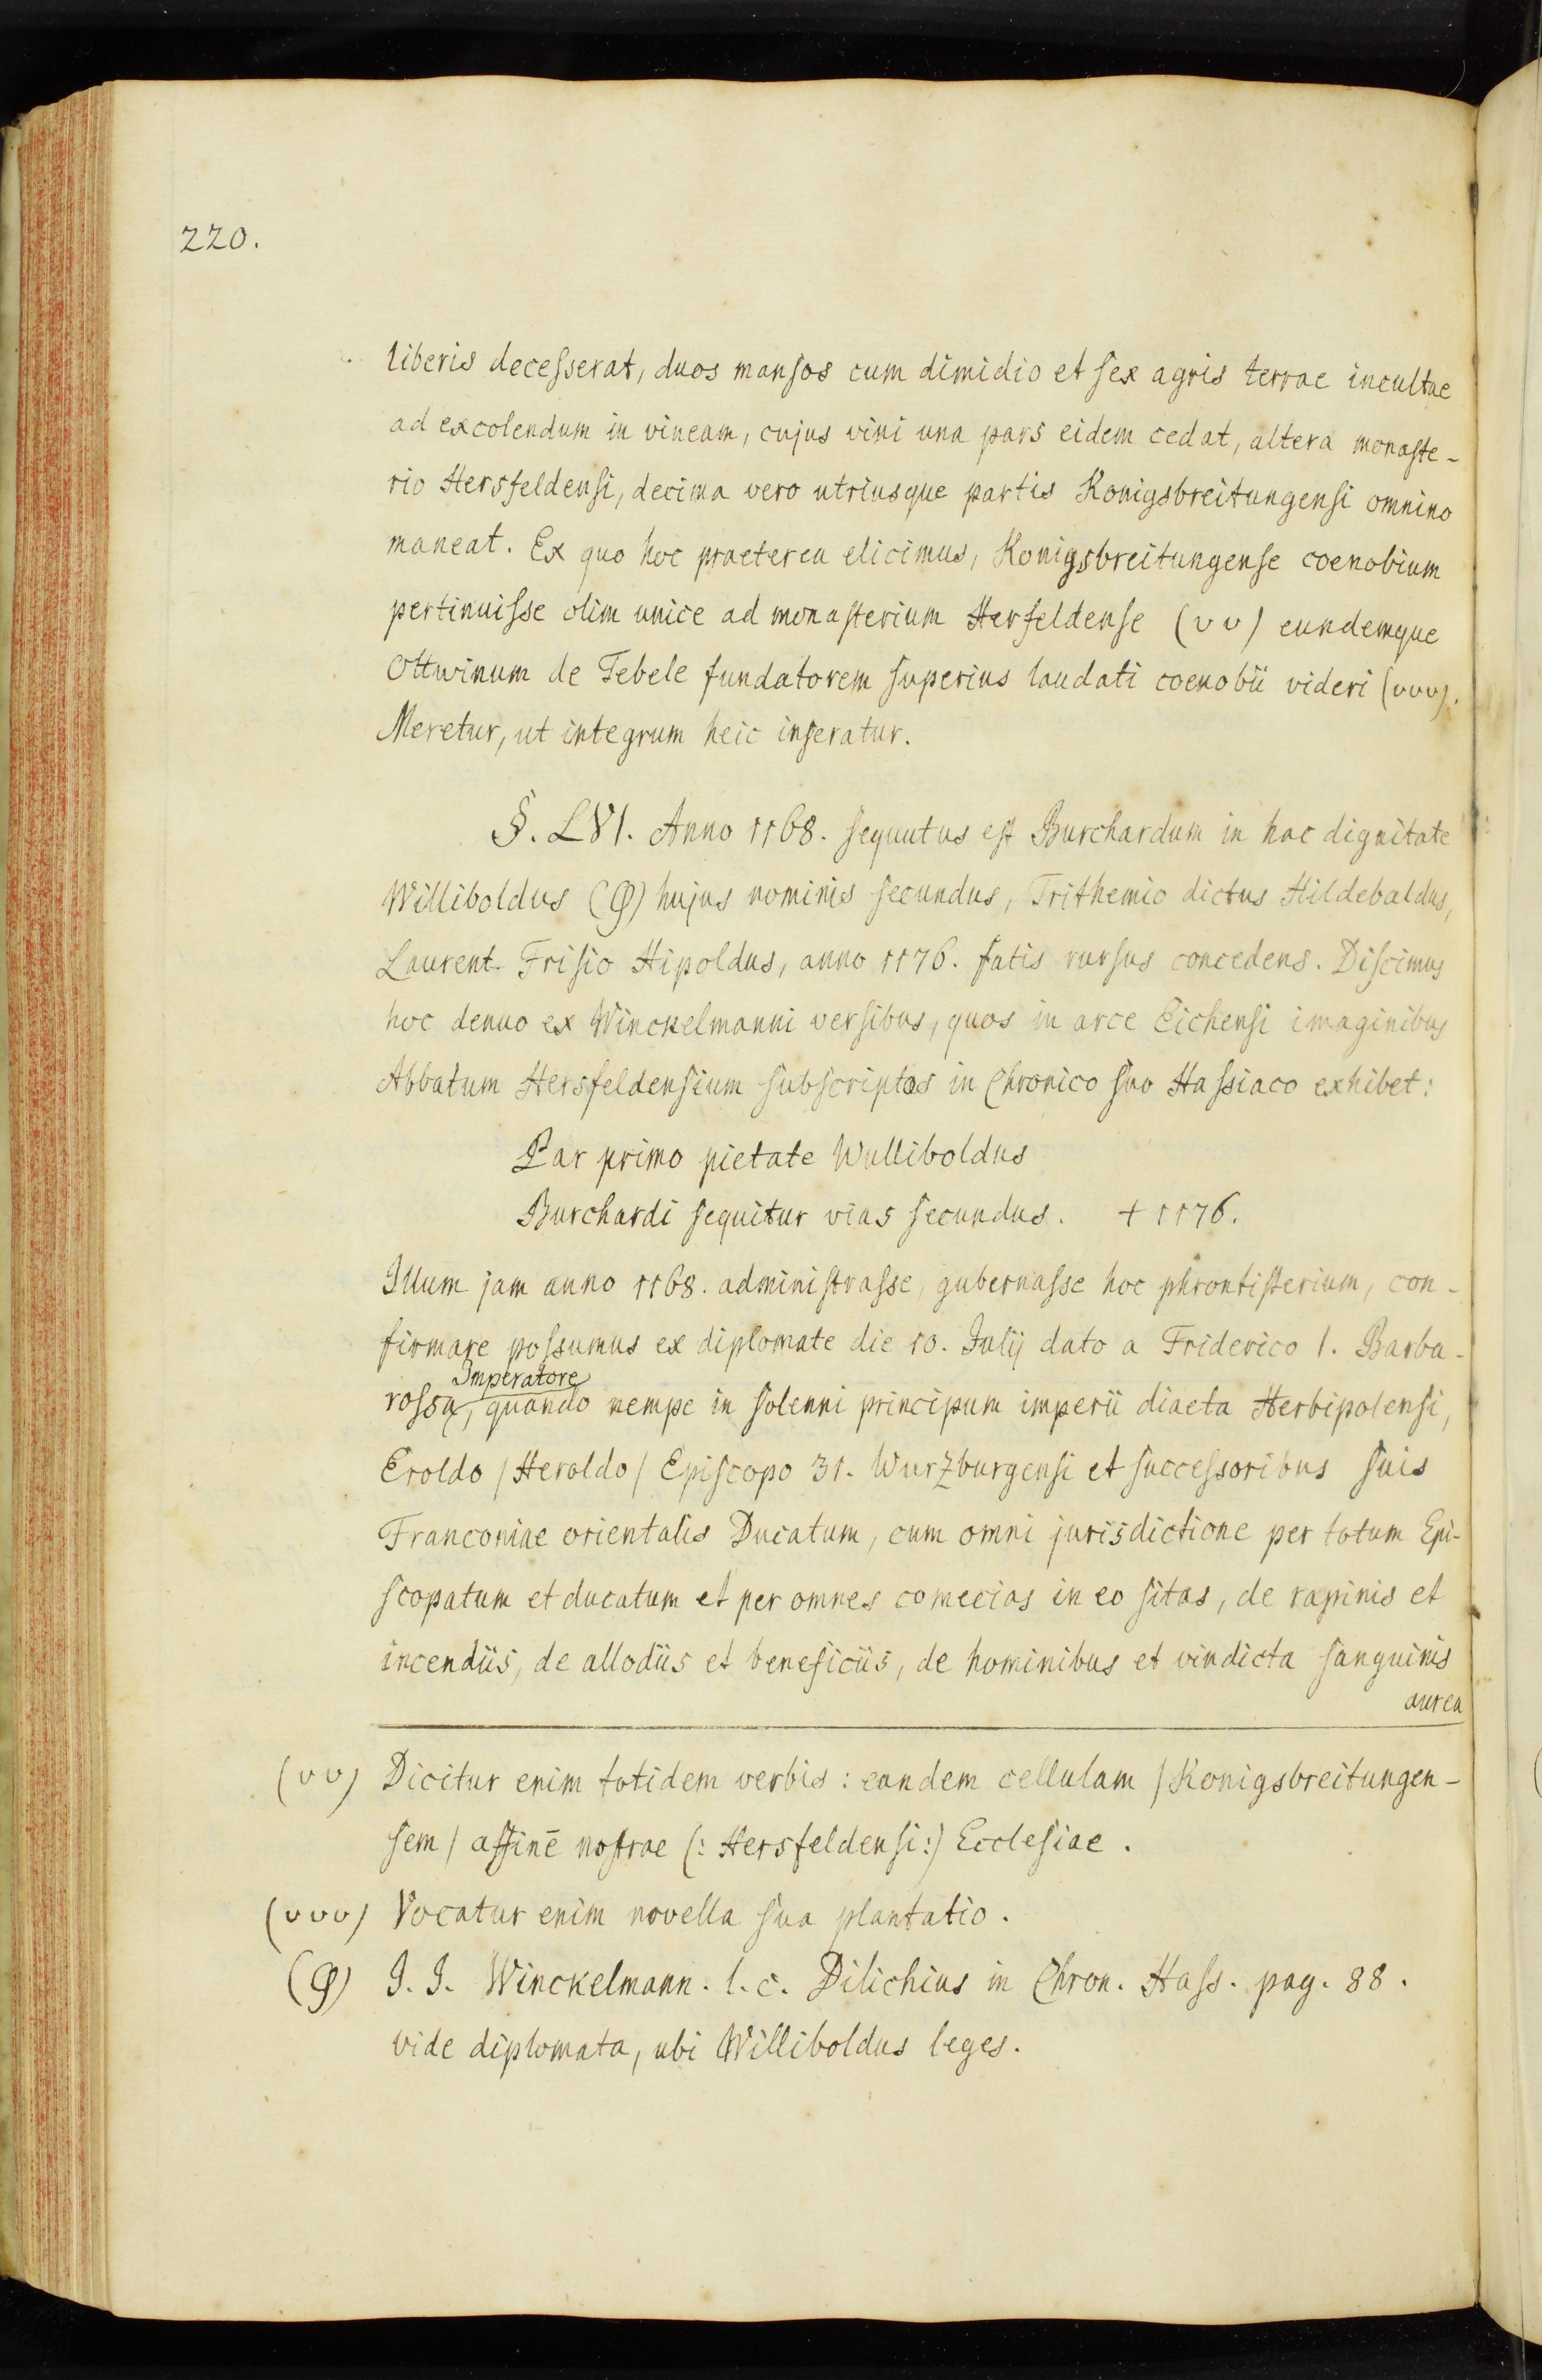 220.
liberis decesserat, duos mansos cum dimidio et sex agris terrae incultae
ad excolendum in vineam, cujus vini una pars eidem cedat, altera monaste-
rio Hersfeldensi, decima vero utriusque partis Konigsbreitungensi omnino
maneat. Ex quo hoc praeterea elicimus, Konigsbreitungense coenobium
pertinuisse olim unice ad monasterium Herfeldense (vv) eundemque
Ottwinum de Tebele fundatorem superius laudati coenobii videri (vvv).
Meretur, ut integrum heic inseratur.
§. LVI. Anno 1168. sequutus est Burchardum in hac dignitate
Williboldus (φ) hujus nominis secundus, Trithemio dictus Hildebaldus,
Laurent. Frisio Hipoldus, anno 1176. fatis rursus concedens. Discimus
hoc denuo ex Winckelmanni versibus, quos in arce Eichensi imaginibus
Abbatum Hersfeldensium subscriptos in Chronico suo Hassiaco exhibet:
Par primo pietate Wulliboldus
Burchardi sequitur vias secundus. † 1176.
Illum jam anno 1168. administrasse, gubernasse hoc phrontisterium, con-
firmare possumus ex diplomate die 10. Julij dato a Friderico I. Barba-
Imperatore
rossa, quando nempe in solenni principum imperii diaeta Herbipolensi,
Eroldo / Heroldo / Episcopo 31. Wurzburgensi et successoribus suis
Franconiae orientalis Ducatum, cum omni jurisdictione per totum Epi-
scopatum et ducatum et per omnes comecias in eo sitas, de rapinis et
incendiis, de allodiis et beneficiis, de hominibus et vindicta sanguinis
aurea
(vv) Dicitur enim totidem verbis: eandem cellulam / Konigsbreitungen-
sem / affinē nostrae (: Hersfeldensi:) Ecclesiae.
(vvv) Vocatur enim novella sua plantatio.
(φ) J. J. Winckelmann. l. c. Dilichius in Chron. Hass. pag. 88.
vide diplomata, ubi Williboldus leges.